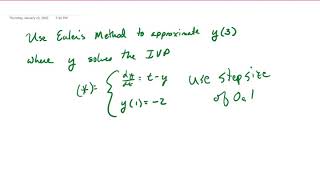 Thursday, January 20, 2022 7:42 PM
Use Euler's Method to approximate y(3)
where y solves the IVP
(*) = { dy/dt = t - y
y(1) = -2
use step size
of 0.1